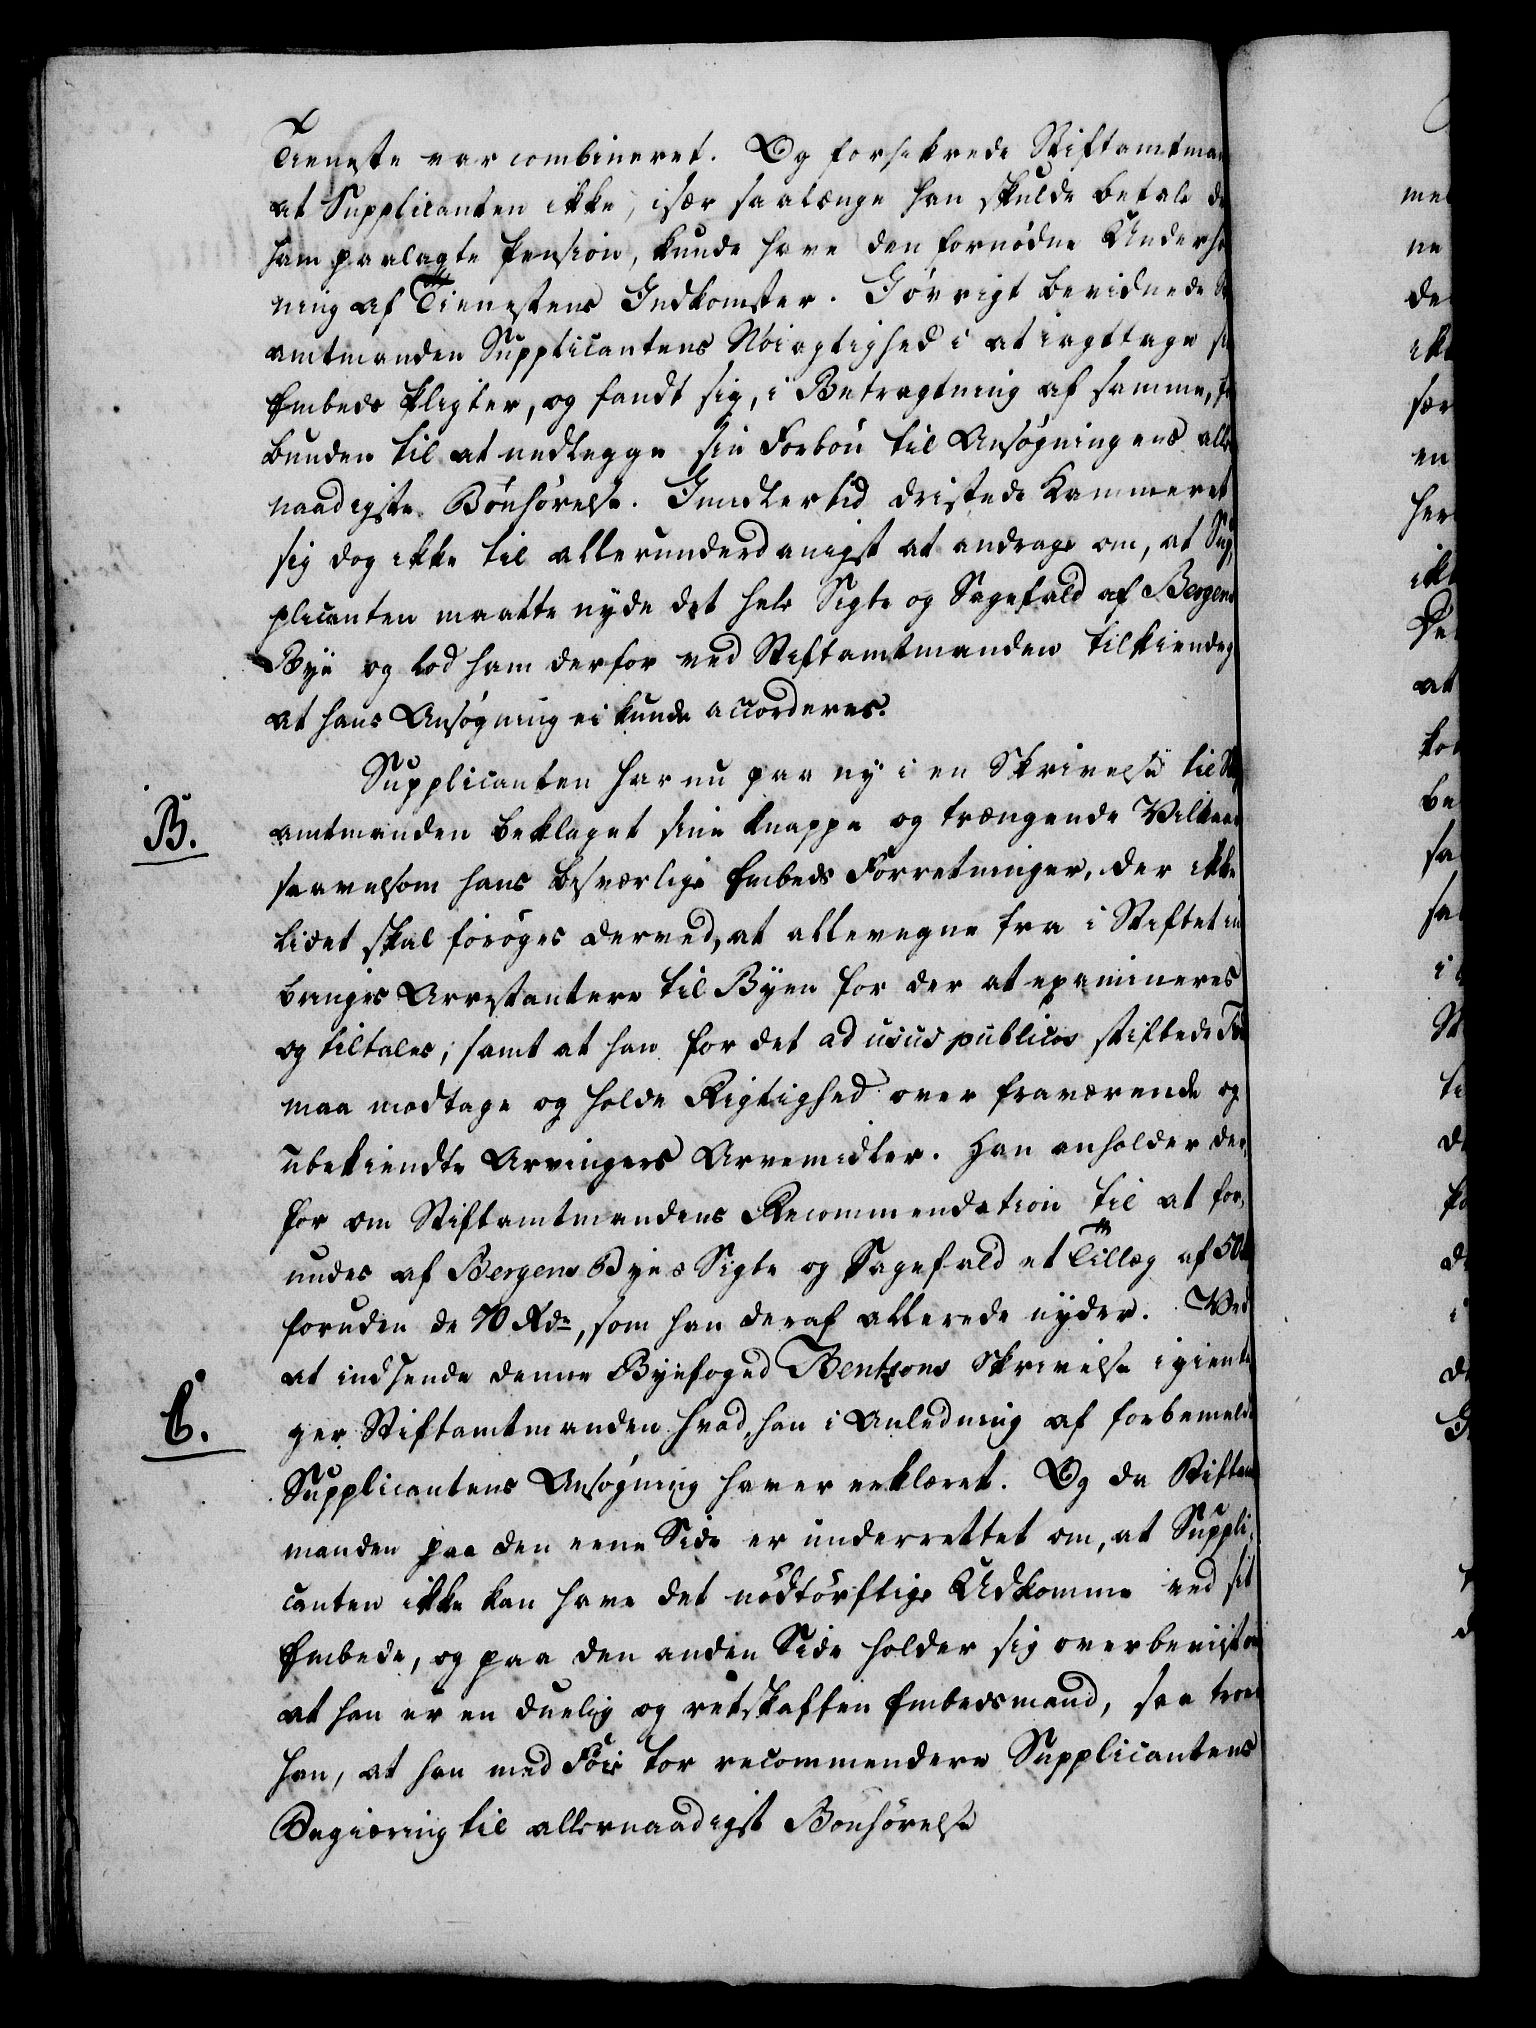 Tieneste var combineret. Og forsikrede Stiftamtman
at Supplicanten ikke, især saalænge han skulde betale de
ham paalagte Pension, kunde have den fornødne Underho
ning af Tienestens Indkomster. I øvrigt bevidnede
amtmanden Supplicantens Nöiagtighed i at iagttage si
Embeds Pligter, og fandt sig, i Betragtning af samme, fo
bunden til at nedlægge sin Forbön til Ansøgningens aller
naadigste Bönhörelse. Imidlertid dristede Kammeret
sig dog ikke til allerunderdanigst at andrage om, at Sup,
plicanten maatte nyde det hele Sigte og Sagefald af Bergens
Bye og lod ham derfor ved Stiftamtmanden tilkiendeg
at hans Ansøgning ei kunde accorderes.
B.
Supplicanten har nu paa ny i en Skrivelse til St
amtmanden beklaget sine knappe og trængende Vilkaar
saavelsom hans besværlige Embeds Forretninger, der ikke
lidet skal forøges derved, at allevegne fra i Stiftet in
bringes Arrestantere til Byen for der at examineres
og tiltales; samt at han for det ad usus publicos stiftede
maa modtage og holde Rigtighed over fraværende og
ubekiendte Arvingers Arvemidler. Han anholder der,
for om Stiftamtmandens Recommendation til at for,
undes af Bergens Byes Sigte og Sagefald et Tillæg af 50
foruden de 70 Rdr, som han deraf allerede nyder. Ved
at indsende denne Byefoged Bentzons Skrivelse igienta
C.
ger Stiftamtmanden hvad han i Anledning af forbemeldte
Supplicantens Ansøgning haver erklæret. Og da Stiftamt
manden paa den eene Side er underrettet om, at Suppli,
canten ikke kan have det nödtörftige Udkomme ved sit
Embede, og paa den anden Side holder sig overbeviist om
at han er en duelig og retskaffen Embedsmand, saa troer
han, at han med Föie tör recommendere Supplicantens
Begiæring til allernaadigst Bönhörelse